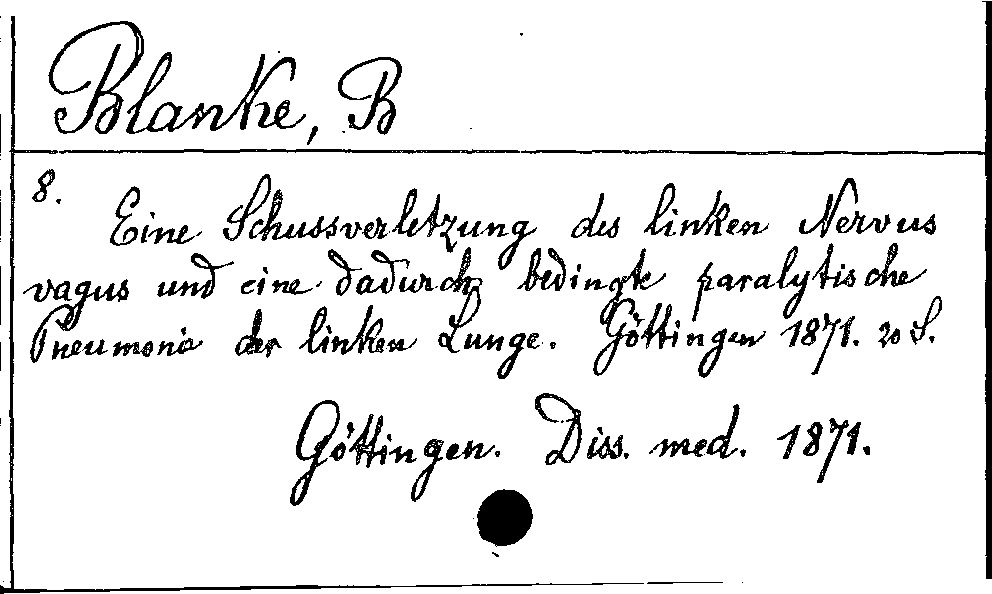 Blanke, B
8.
Eine Schussverletzung des linken Nervus
vagus und eine dadurch bedingte paralytische
Pneumonie der linken Lunge. Göttingen 1871. 20 S.
Göttingen. Diss. med. 1871.